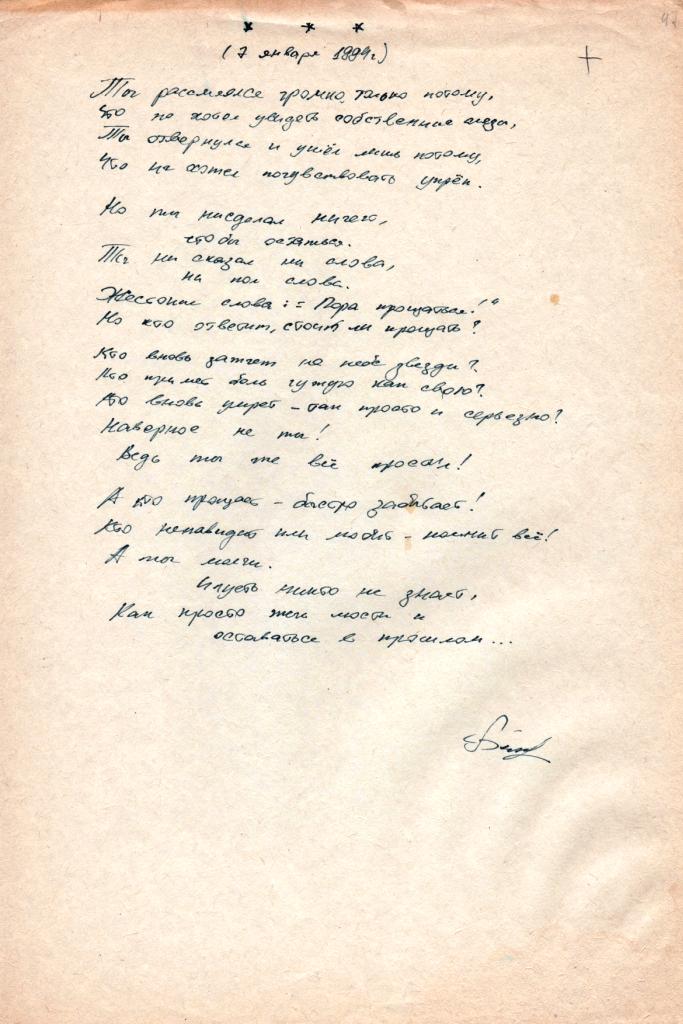 * * *
(7 января 1994г)
Ты рассмеялся громко, только потому,
Что не хотел увидеть собственные слёзы,
Ты отвернулся и ушёл лишь потому,
Что не хотел почувствовать упрёк.
Но ты нисделал ничего,
чтобы остаться.
Ты ни сказал ни слова,
ни пол слова.
Жестокие слова: „Пора прощаться!“
Но кто ответит, стоит ли прощать?
Кто вновь зажжет на небе звезды?
Кто примет боль чужую как свою?
Кто вновь умрет – так просто и серьезно?
Наверное не ты!
Ведь ты же всё простил!
А кто прощает – быстро забывает!
Кто ненавидит или любит – помнит всё!
А ты молчи.
И пусть никто не знает,
Как просто жечь мосты и
оставаться в прошлом...